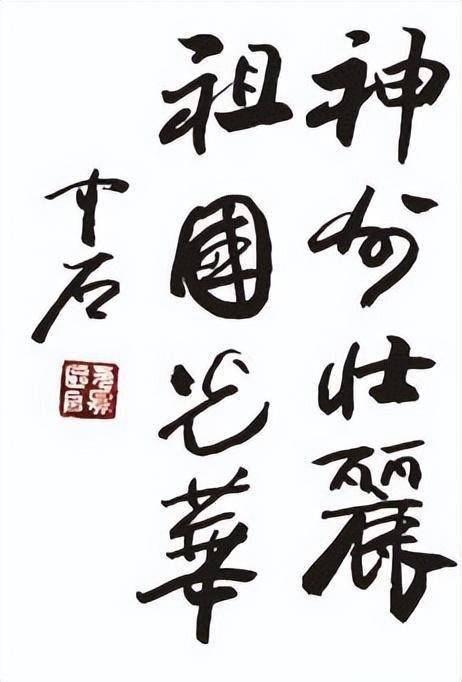 神州壯麗
祖國光華
中石